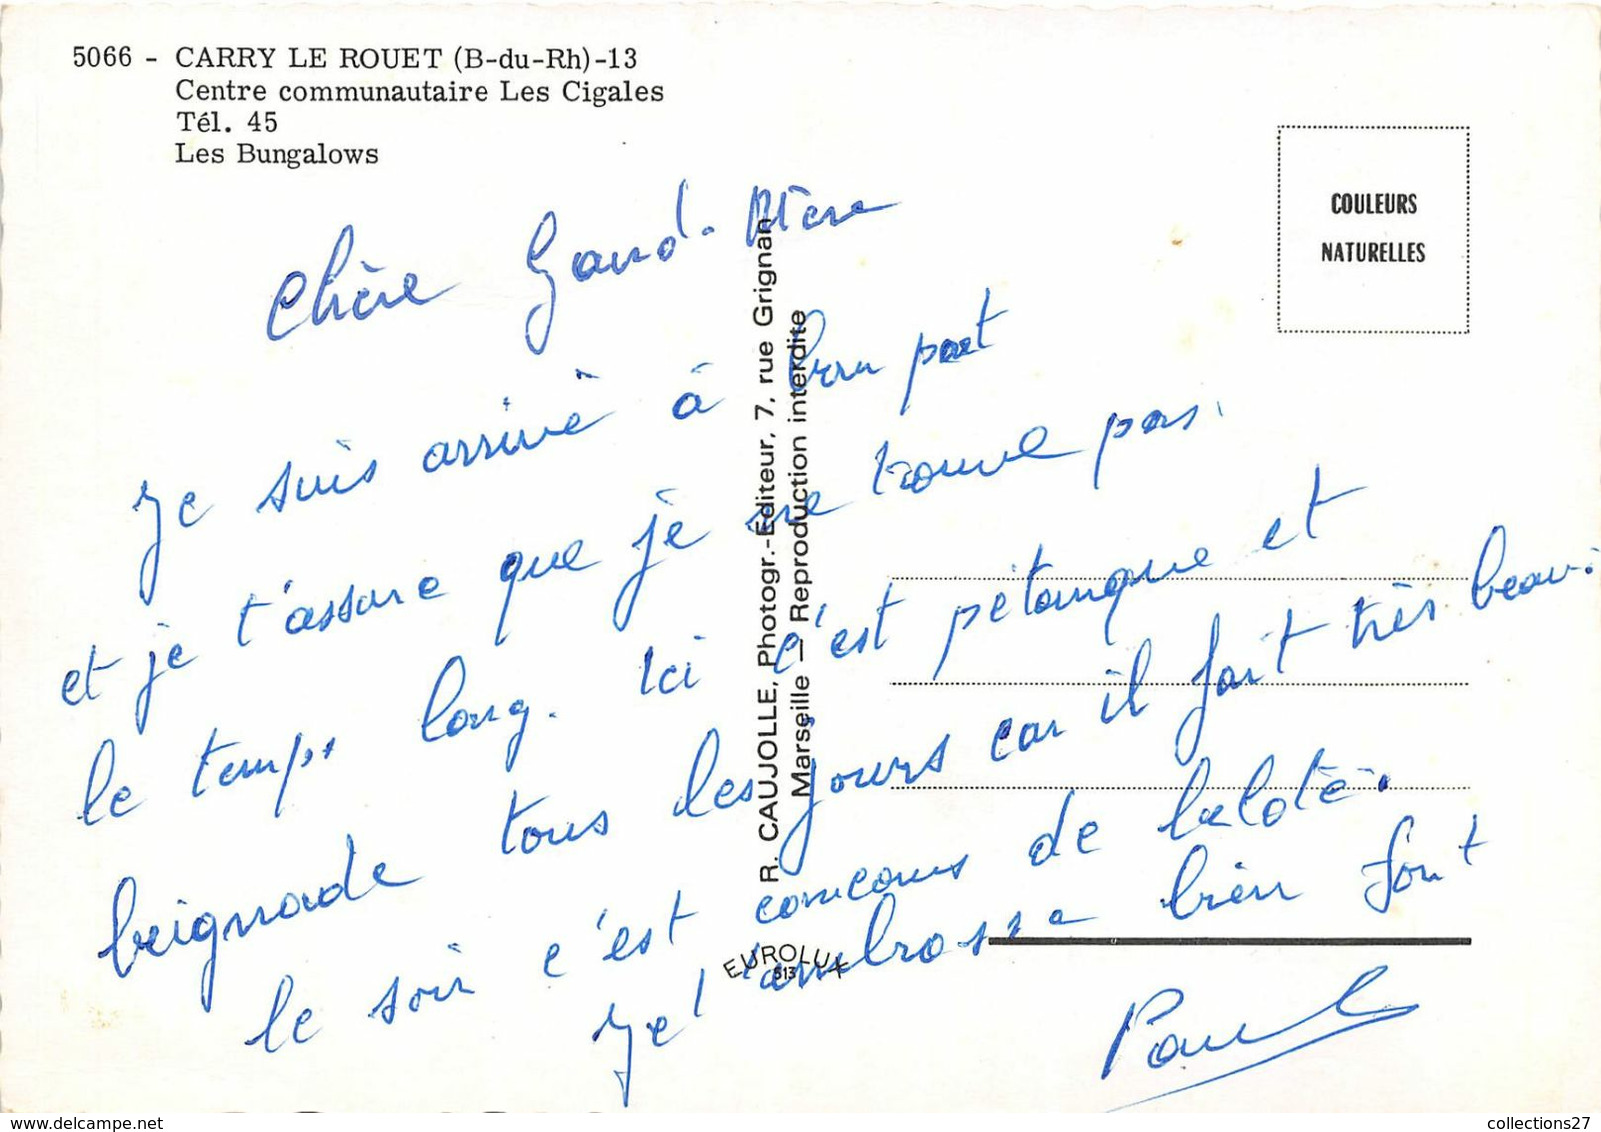 5066 - CARRY LE ROUET (B-du-Rh)-13
Centre communautaire Les Cigales
Tél. 45
Les Bungalows
COULEURS
NATURELLES
Chère Grand-Mère
Je suis arrivé à bon port
et je t'assure que je ne trouve pas
le temps long. Ici c'est pétanque et
beignade tous les jours car il fait très beau.
le soir c'est concours de belote.
Je t'ambrosse bien fort
Paul
R. CAUJOLLE, Photogr.-Editeur, 7, rue Grignan
Marseille — Reproduction interdite
EUROLUX
513
collections27